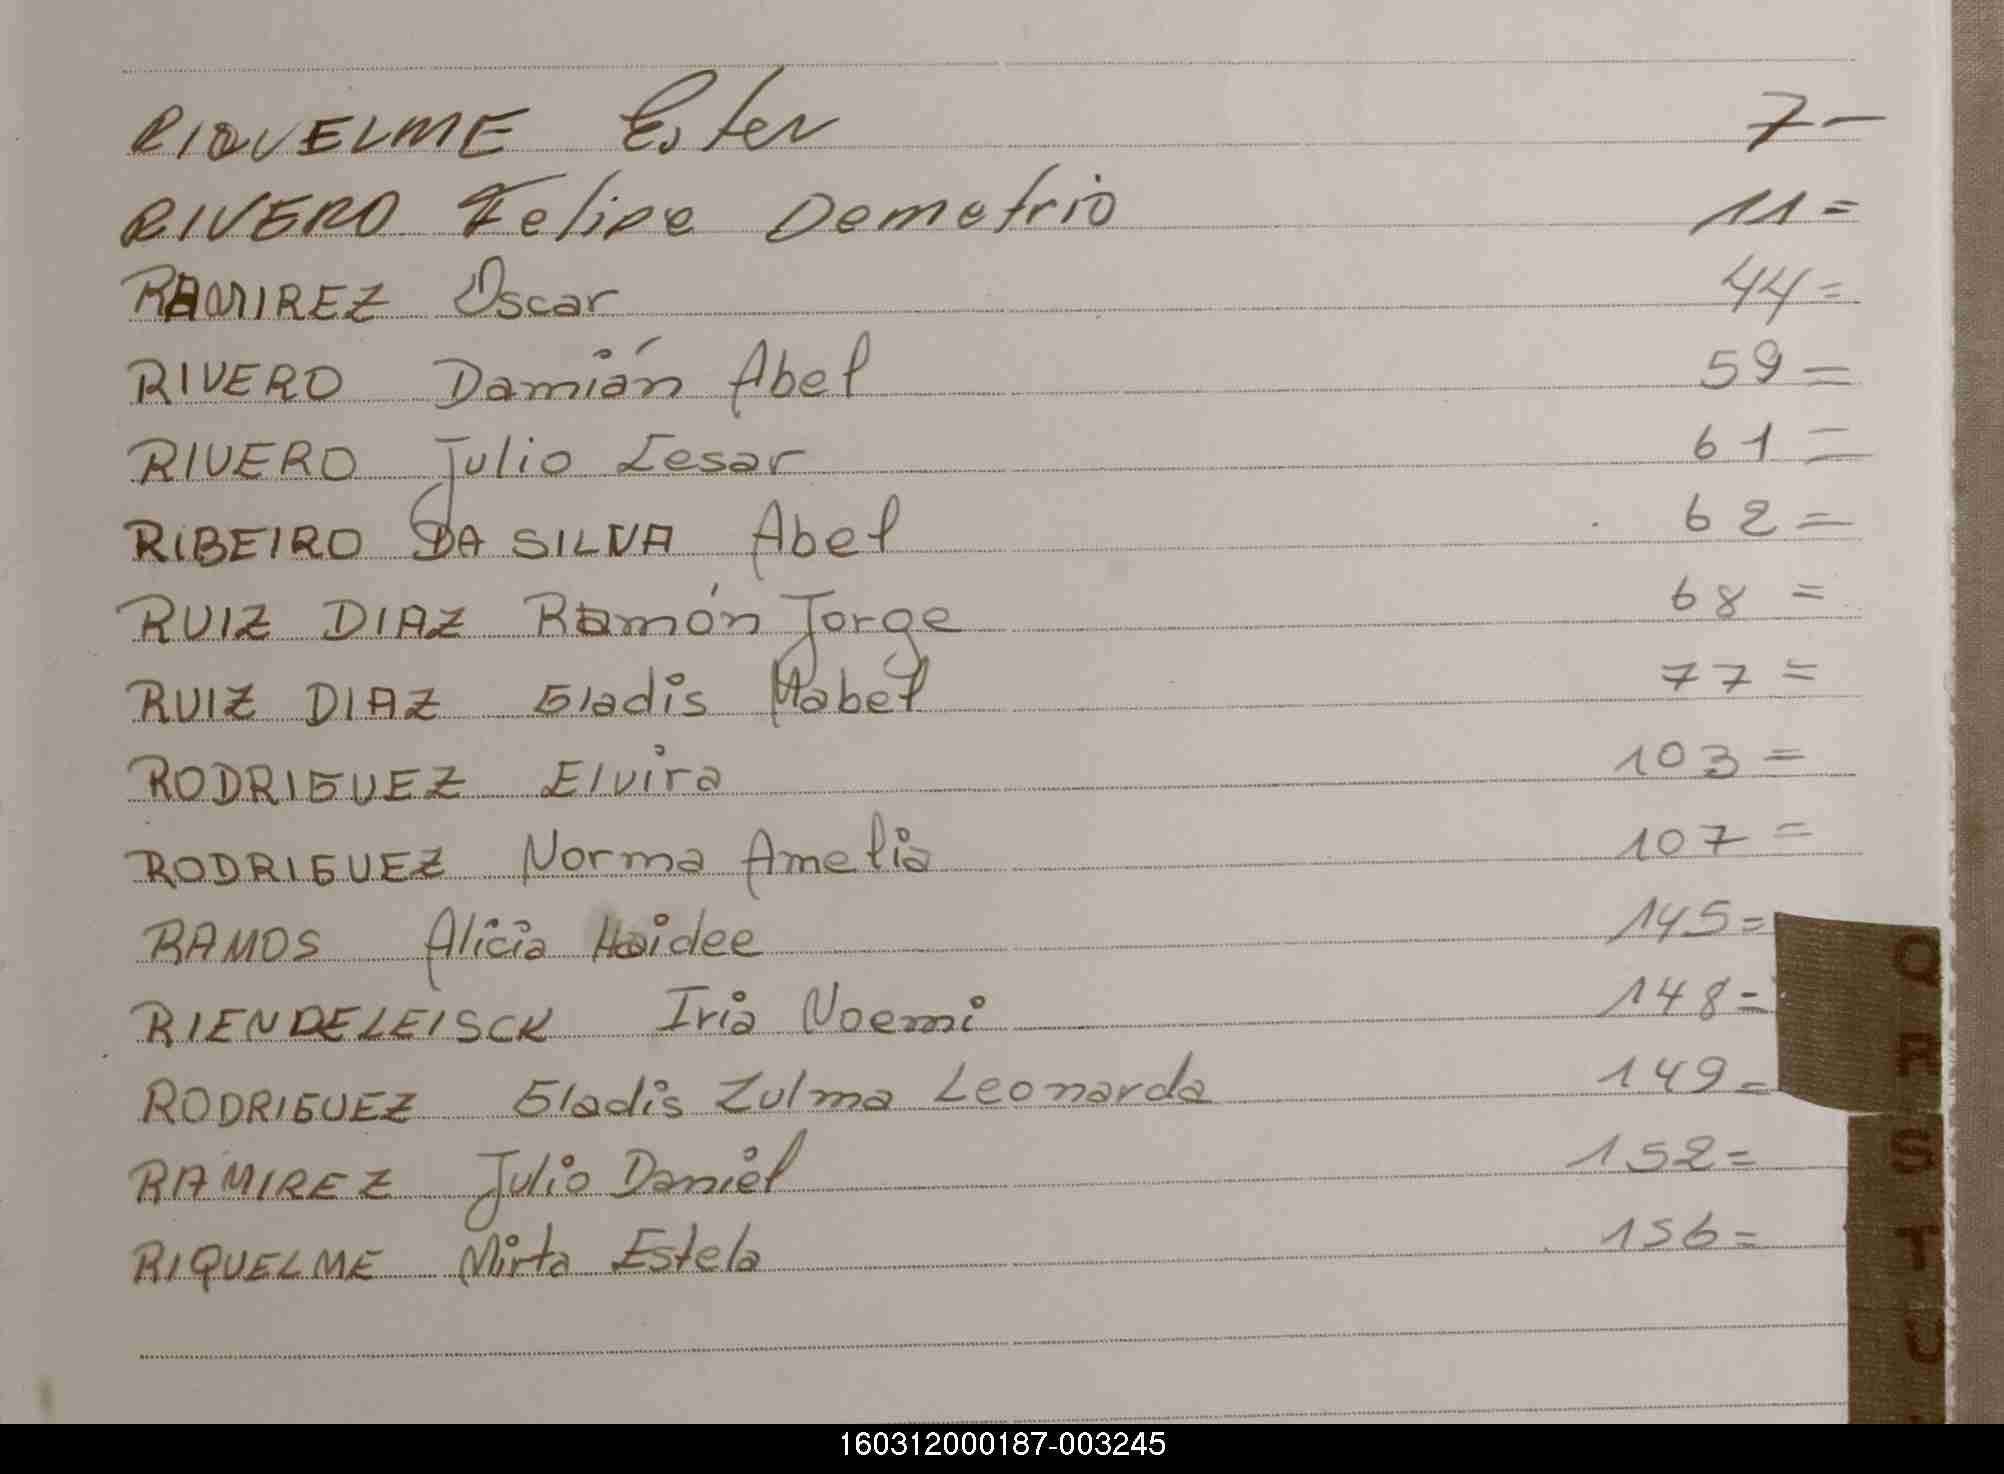 RIQUELME Ester 7-
RIVERO Felipe Demetrio 11=
RAMIREZ Oscar 44=
RIVERO Damián Abel 59=
RIVERO Julio Cesar 61=
RIBEIRO DA SILVA Abel 62=
RUIZ DIAZ Ramón Jorge 68=
RUIZ DIAZ Gladis Mabel 77=
RODRIGUEZ Elvira 103=
RODRIGUEZ Norma Amelia 107=
RAMOS Alicia Haidee 145=
RIENDELEISCK Iria Noemi 148=
RODRIGUEZ Gladis Zulma Leonarda 149=
RAMIREZ Julio Daniel 152=
RIQUELME Mirta Estela 156=
Q
R
S
T
U
160312000187-003245